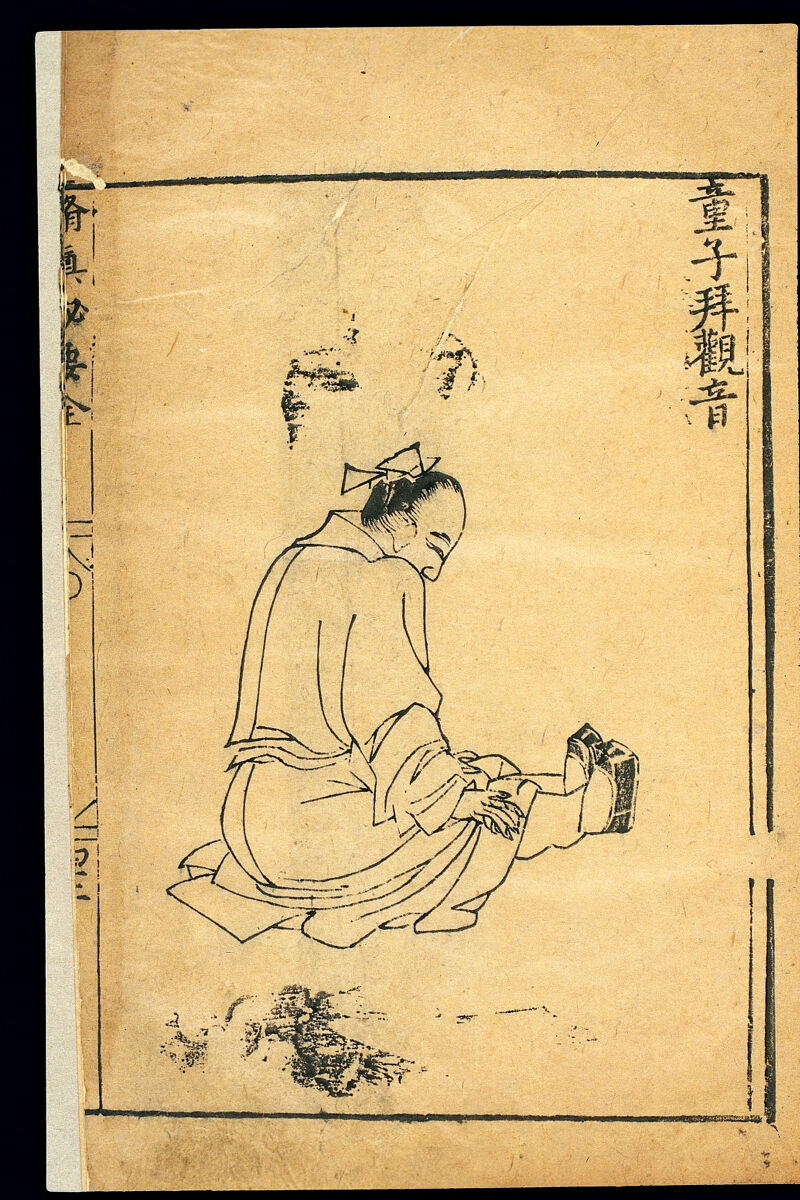 童子拜觀音
脩真祕要全